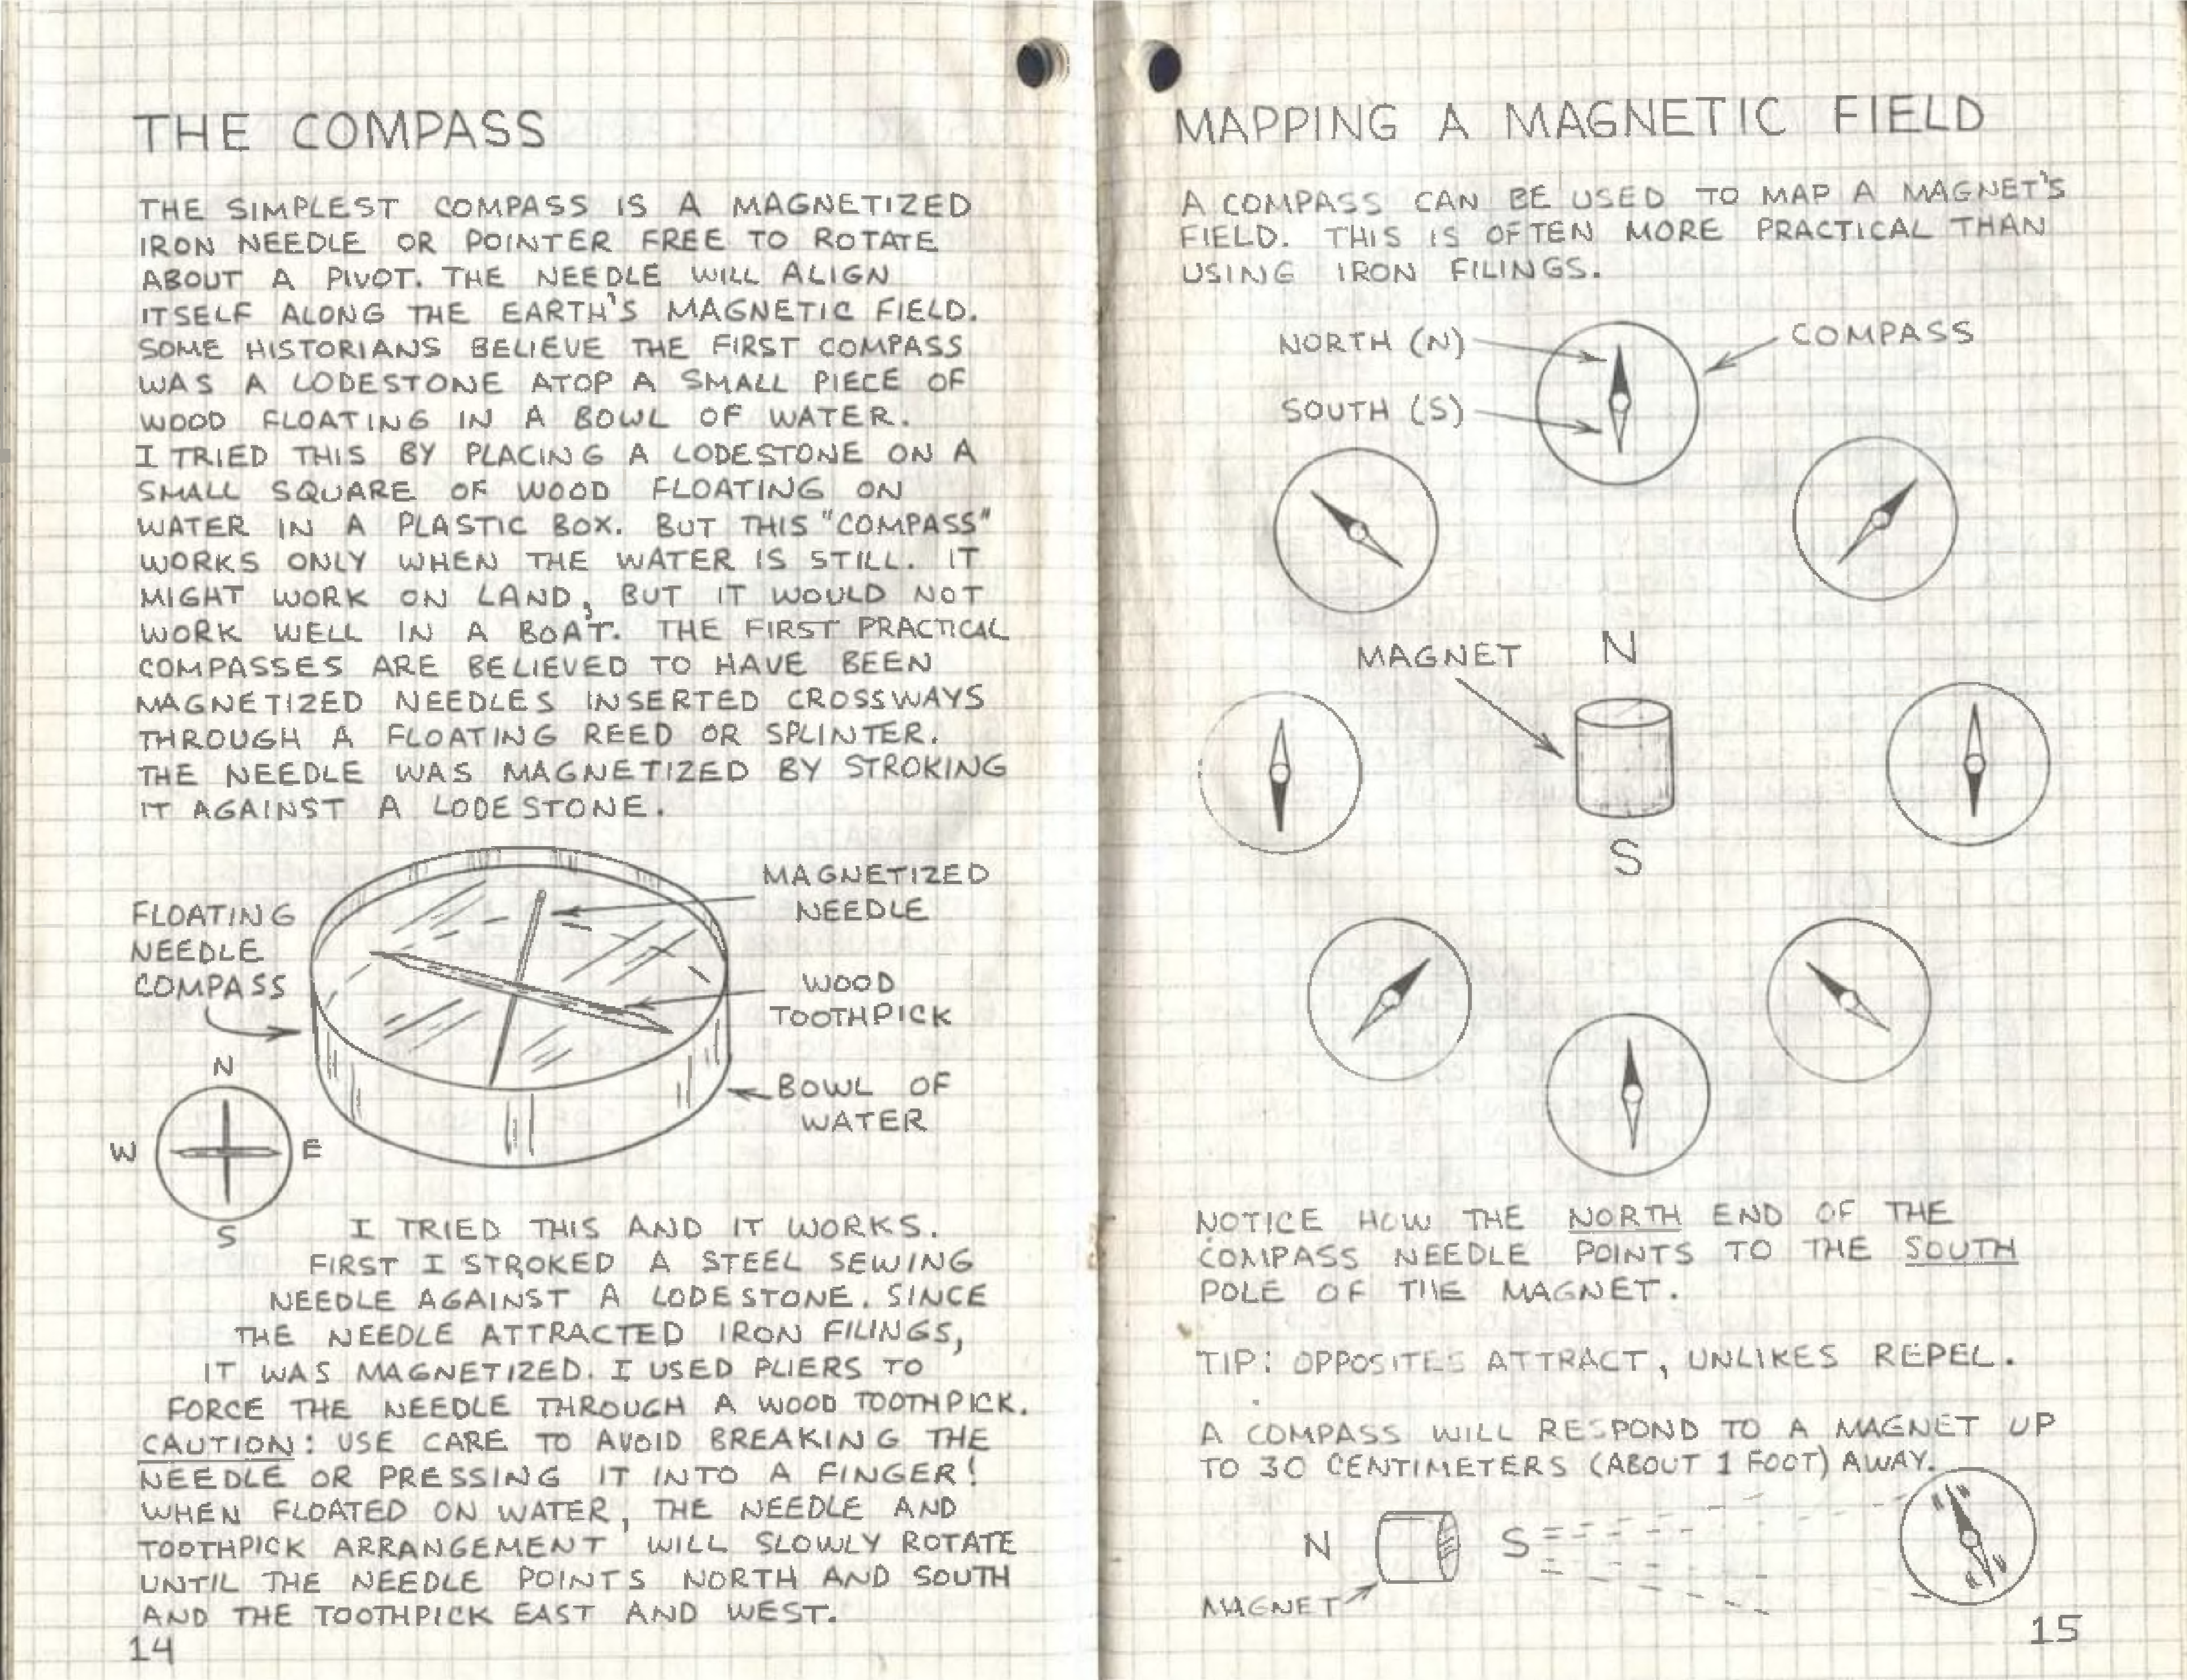 THE COMPASS
THE SIMPLEST COMPASS IS A MAGNETIZED
IRON NEEDLE OR POINTER FREE TO ROTATE
ABOUT A PIVOT. THE NEEDLE WILL ALIGN
ITSELF ALONG THE EARTH'S MAGNETIC FIELD.
SOME HISTORIANS BELIEVE THE FIRST COMPASS
WAS A LODESTONE ATOP A SMALL PIECE OF
WOOD FLOATING IN A BOWL OF WATER.
I TRIED THIS BY PLACING A LODESTONE ON A
SMALL SQUARE OF WOOD FLOATING ON
WATER IN A PLASTIC BOX. BUT THIS "COMPASS"
WORKS ONLY WHEN THE WATER IS STILL. IT
MIGHT WORK ON LAND, BUT IT WOULD NOT
WORK WELL IN A BOAT. THE FIRST PRACTICAL
COMPASSES ARE BELIEVED TO HAVE BEEN
MAGNETIZED NEEDLES INSERTED CROSSWAYS
THROUGH A FLOATING REED OR SPLINTER.
THE NEEDLE WAS MAGNETIZED BY STROKING
IT AGAINST A LODESTONE.
MAGNETIZED
NEEDLE
FLOATING
NEEDLE
COMPASS
WOOD
TOOTHPICK
BOWL OF
WATER
N
W E
S
I TRIED THIS AND IT WORKS.
FIRST I STROKED A STEEL SEWING
NEEDLE AGAINST A LODESTONE. SINCE
THE NEEDLE ATTRACTED IRON FILINGS,
IT WAS MAGNETIZED. I USED PLIERS TO
FORCE THE NEEDLE THROUGH A WOOD TOOTHPICK.
CAUTION: USE CARE TO AVOID BREAKING THE
NEEDLE OR PRESSING IT INTO A FINGER!
WHEN FLOATED ON WATER, THE NEEDLE AND
TOOTHPICK ARRANGEMENT WILL SLOWLY ROTATE
UNTIL THE NEEDLE POINTS NORTH AND SOUTH
AND THE TOOTHPICK EAST AND WEST.
14
MAPPING A MAGNETIC FIELD
A COMPASS CAN BE USED TO MAP A MAGNET'S
FIELD. THIS IS OFTEN MORE PRACTICAL THAN
USING IRON FILINGS.
NORTH (N)
COMPASS
SOUTH (S)
MAGNET
N
S
NOTICE HOW THE NORTH END OF THE
COMPASS NEEDLE POINTS TO THE SOUTH
POLE OF THE MAGNET.
TIP: OPPOSITES ATTRACT, UNLIKES REPEL.
A COMPASS WILL RESPOND TO A MAGNET UP
TO 30 CENTIMETERS (ABOUT 1 FOOT) AWAY.
N S
MAGNET
15